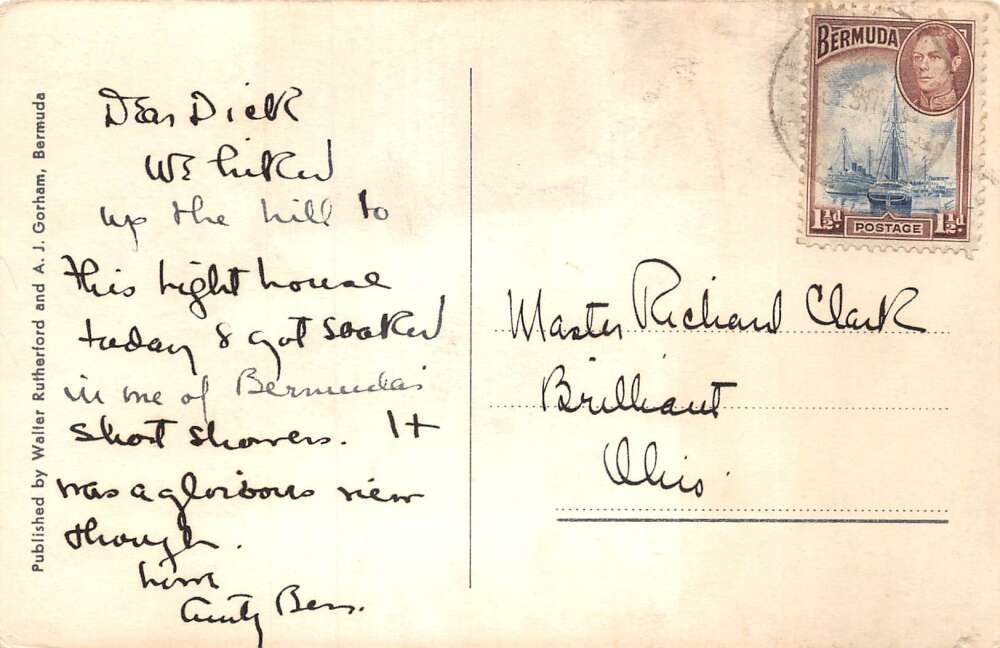 Published by Walter Rutherford and A. J. Gorham, Bermuda
Dear Dick
We hiked
up the hill to
this light house
today & got soaked
in one of Bermuda's
short showers. It
was a glorious view
though.
Love
Aunty Bess.
BERMUDA
1½d POSTAGE 1½d
Master Richard Clark
Brilliant
Ohio